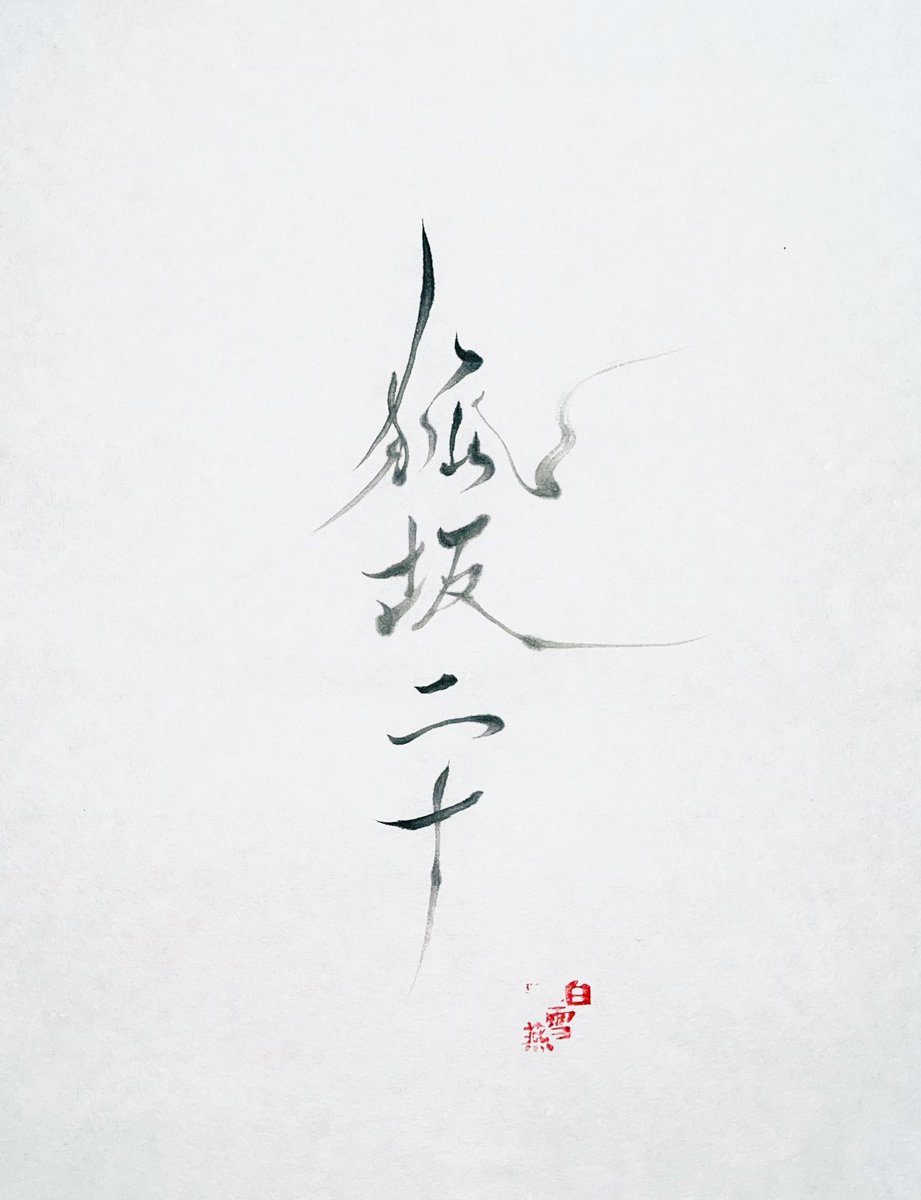 狐坂二十
白雪燕